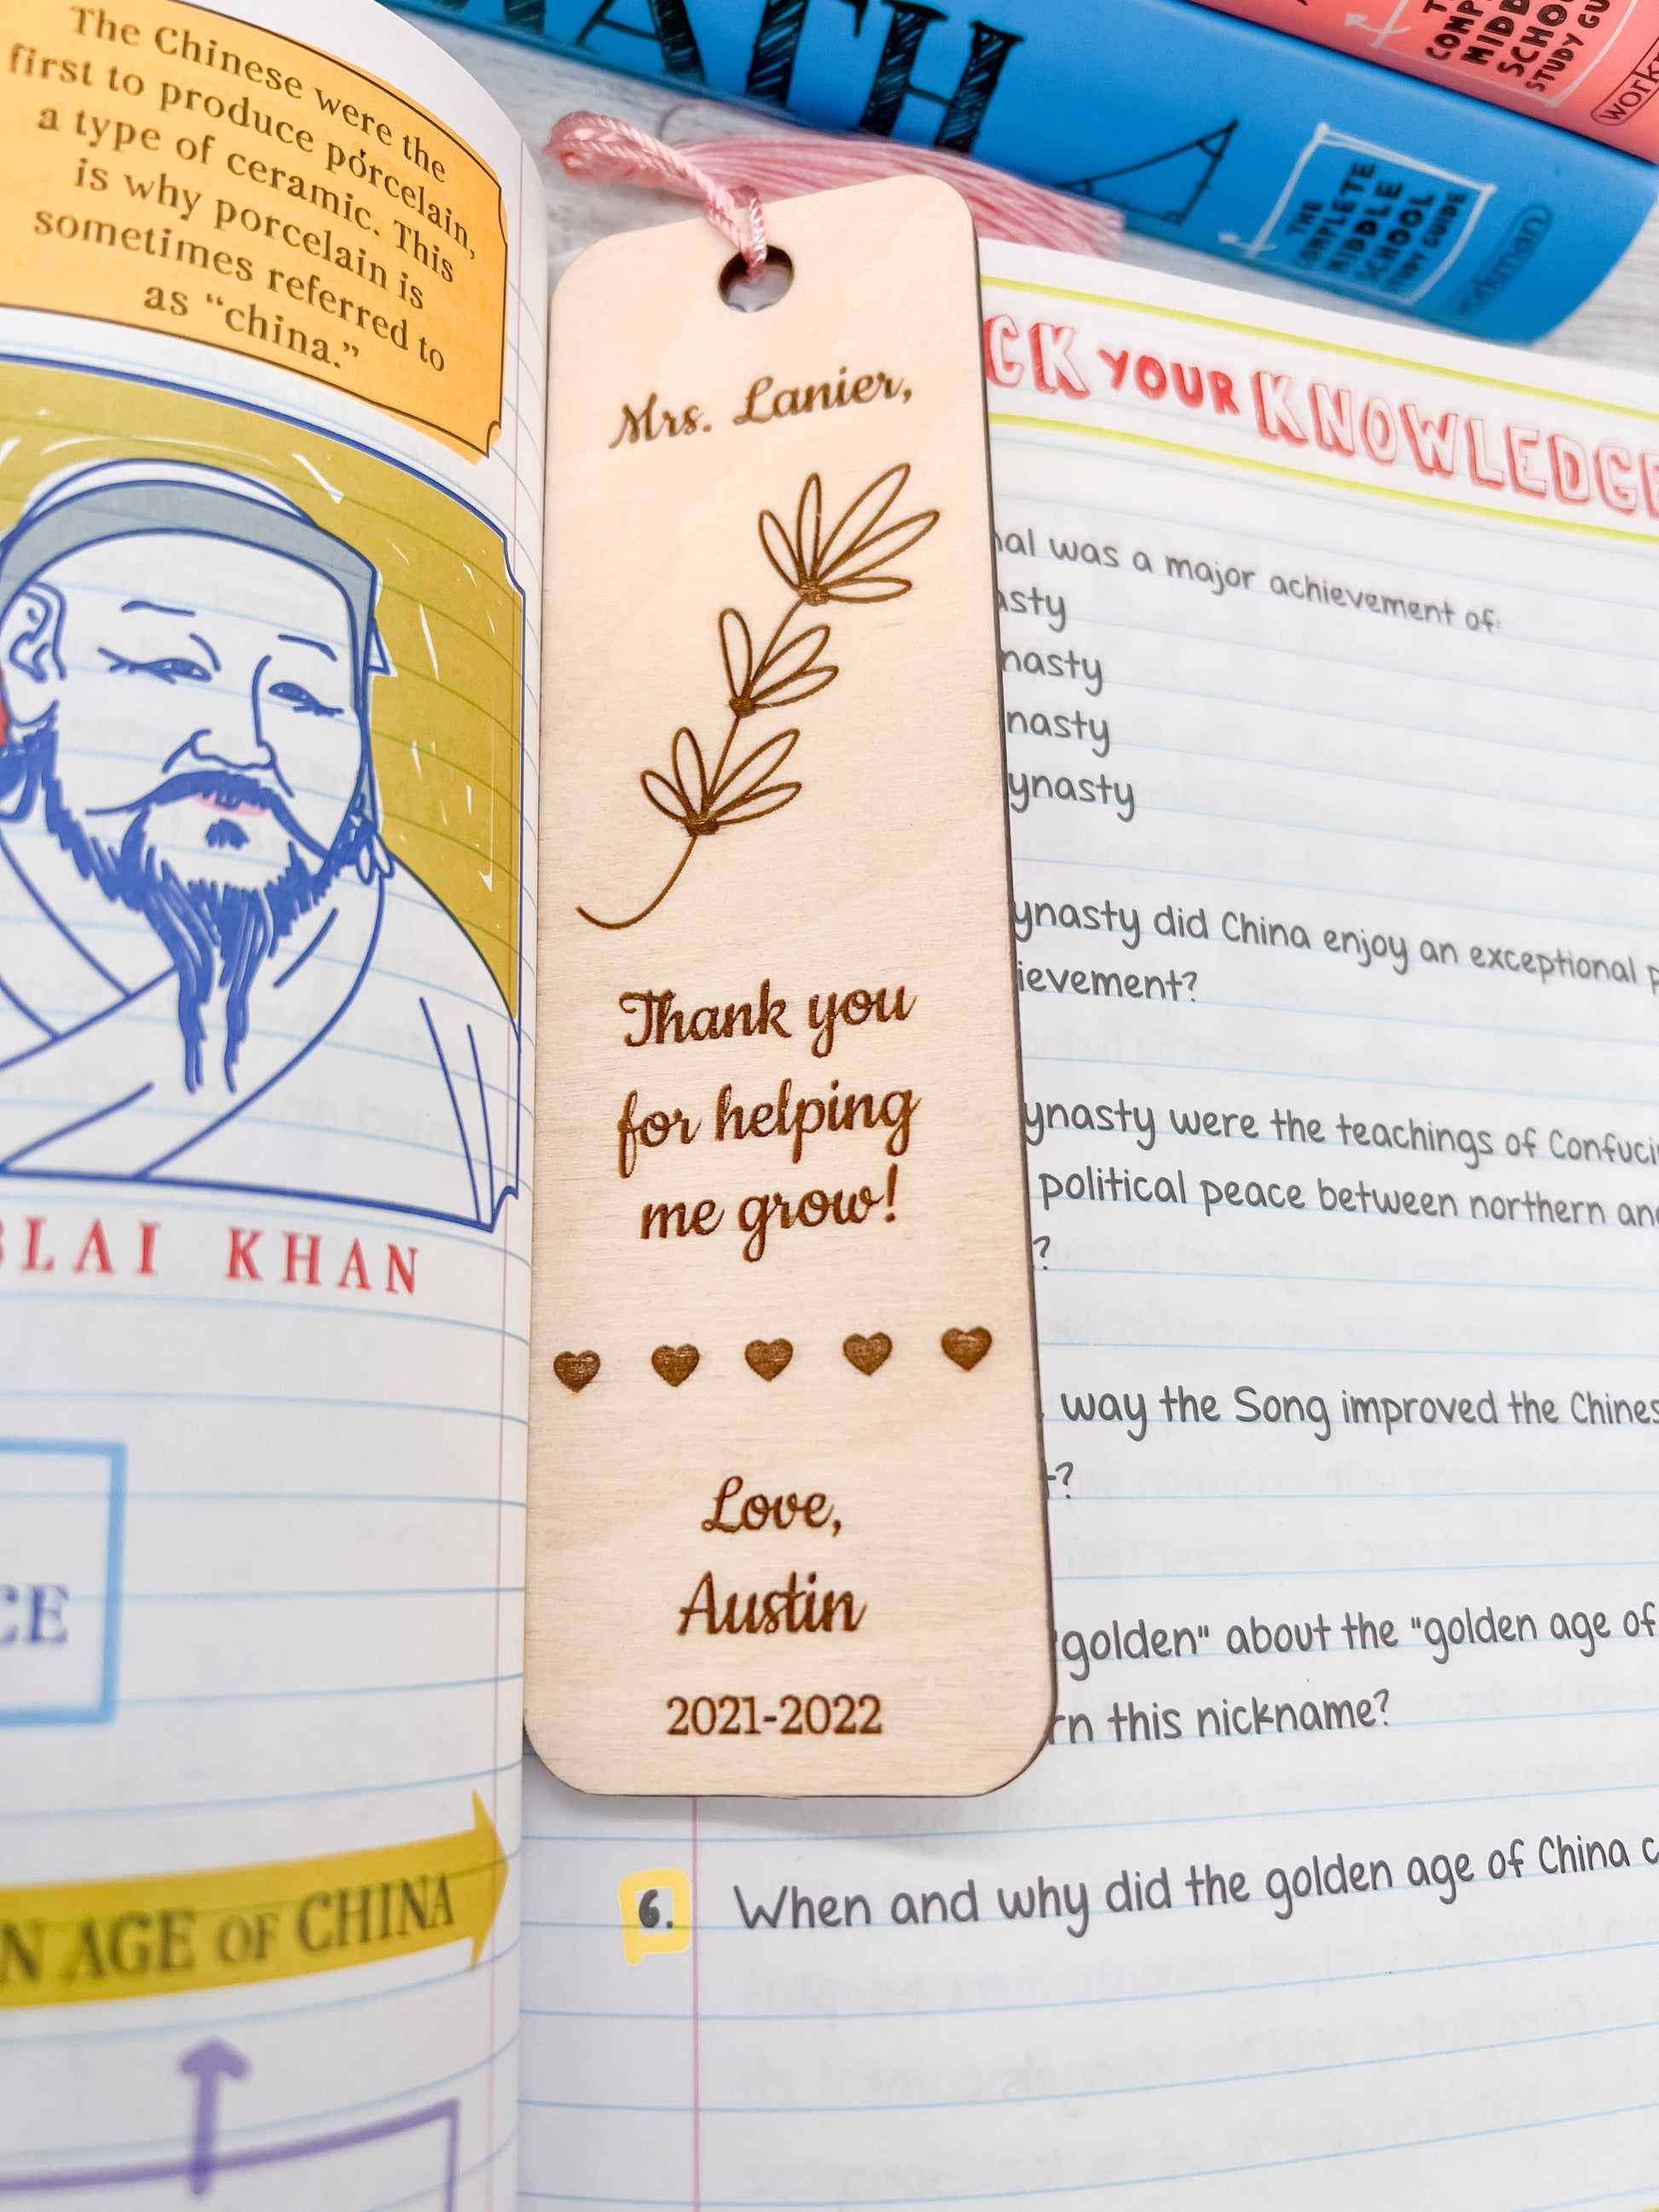 MATH
THE
COMPLETE
MIDDLE
SCHOOL
STUDY GUIDE
workman
SCHOOL
STUDY
The Chinese were the
first to produce porcelain,
a type of ceramic. This
is why porcelain is
sometimes referred to
as “china.”
KHAN
AGE OF CHINA
Mrs. Lanier,
Thank you
for helping
me grow!
Love,
Austin
2021-2022
YOUR KNOWLEDGE
was a major achievement of:
did China enjoy an exceptional
were the teachings of
political peace between northern
way the Song improved the
"golden" about the "golden age of
this nickname?
6. When and why did the golden age of China